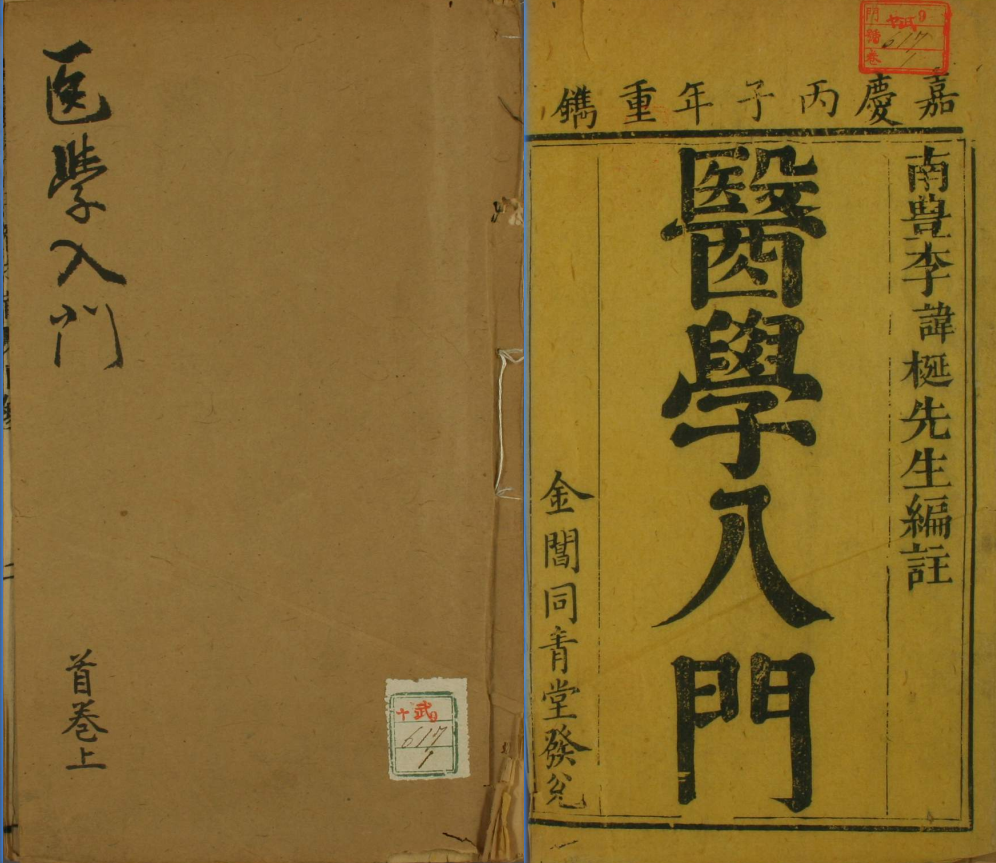 医学入門
首巻上
617
1
9
門
號
卷
617
1
嘉慶丙子年重鐫
南豊李諱梴先生編註
醫學入門
金閶同青堂發兌